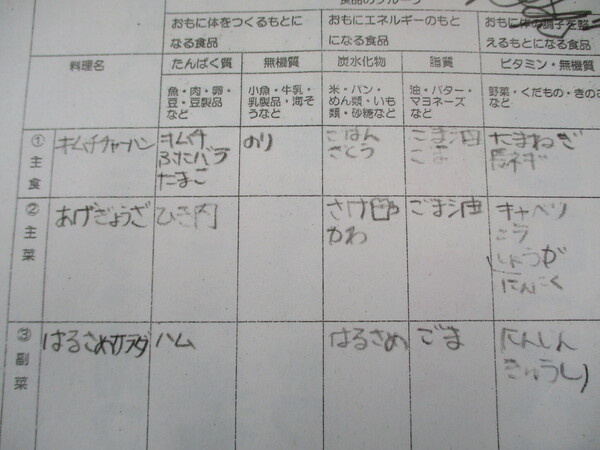 食品のグループ
おもに体をつくるもとに
なる食品
おもにエネルギーのもと
になる食品
おもに体の調子を整
えるもとになる食品
料理名
たんぱく質
無機質
炭水化物
脂質
ビタミン・無機質
魚・肉・卵・
豆・豆製品
など
小魚・牛乳・
乳製品・海そ
うなど
米・パン・
めん類・いも
類・砂糖など
油・バター・
マヨネーズ
など
野菜・くだもの・きの
など
①主食
キムチチャーハン
キムチ
ぶたバラ
たまご
のり
ごはん
さとう
ごま油
ごま
たまねぎ
長ネギ
②主菜
あげぎょうざ
ひき肉
かわ
ごま油
キャベツ
ニラ
しょうが
にんにく
③副菜
はるさめサラダ
ハム
はるさめ
ごま
にんじん
きゅうり